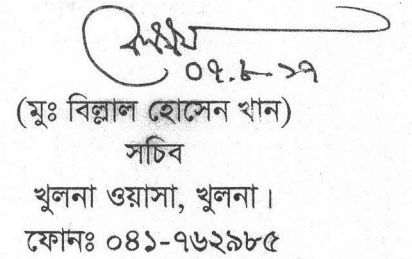 ০৭.৮.১৭
(মুঃ বিল্লাল হোসেন খান)
সচিব
খুলনা ওয়াসা, খুলনা।
ফোনঃ ০৪১-৭৬২৯৮৫